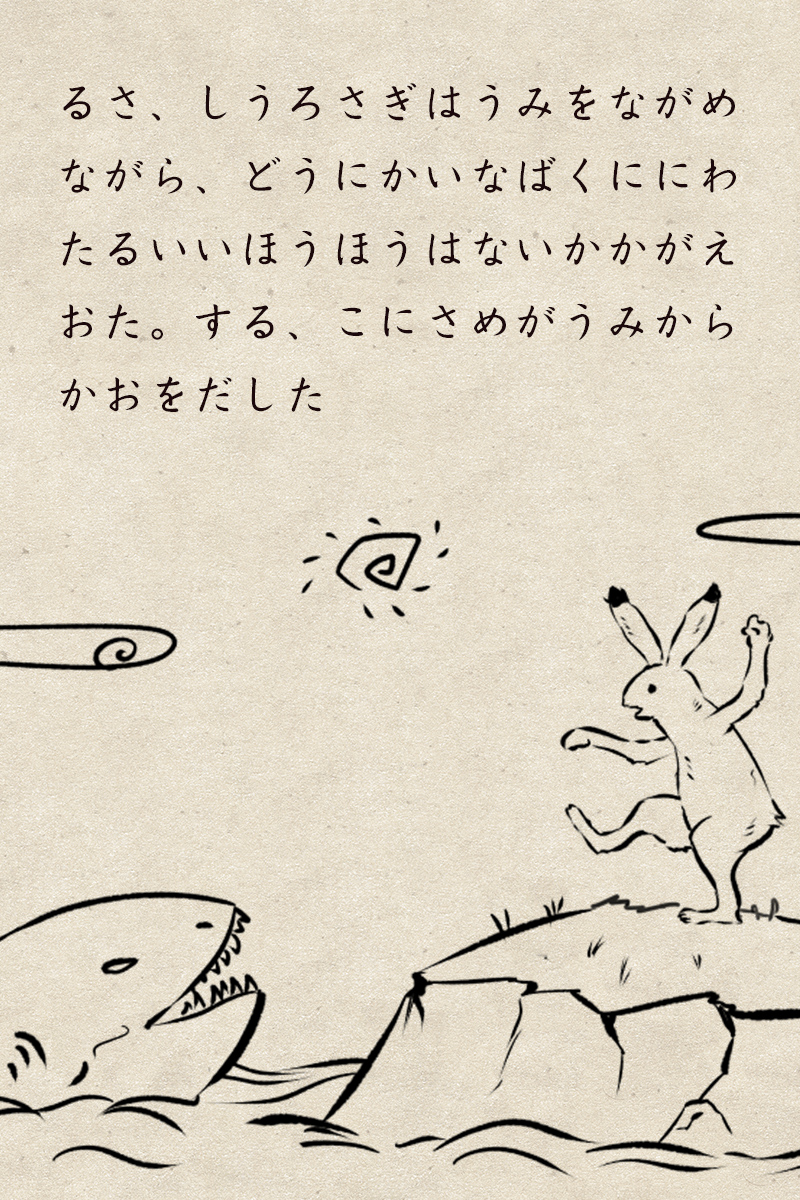 るさ、しうろさぎはうみをながめ
ながら、どうにかいなばくににわ
たるいいほうほうはないかかがえ
おた。する、こにさめがうみから
かおをだした